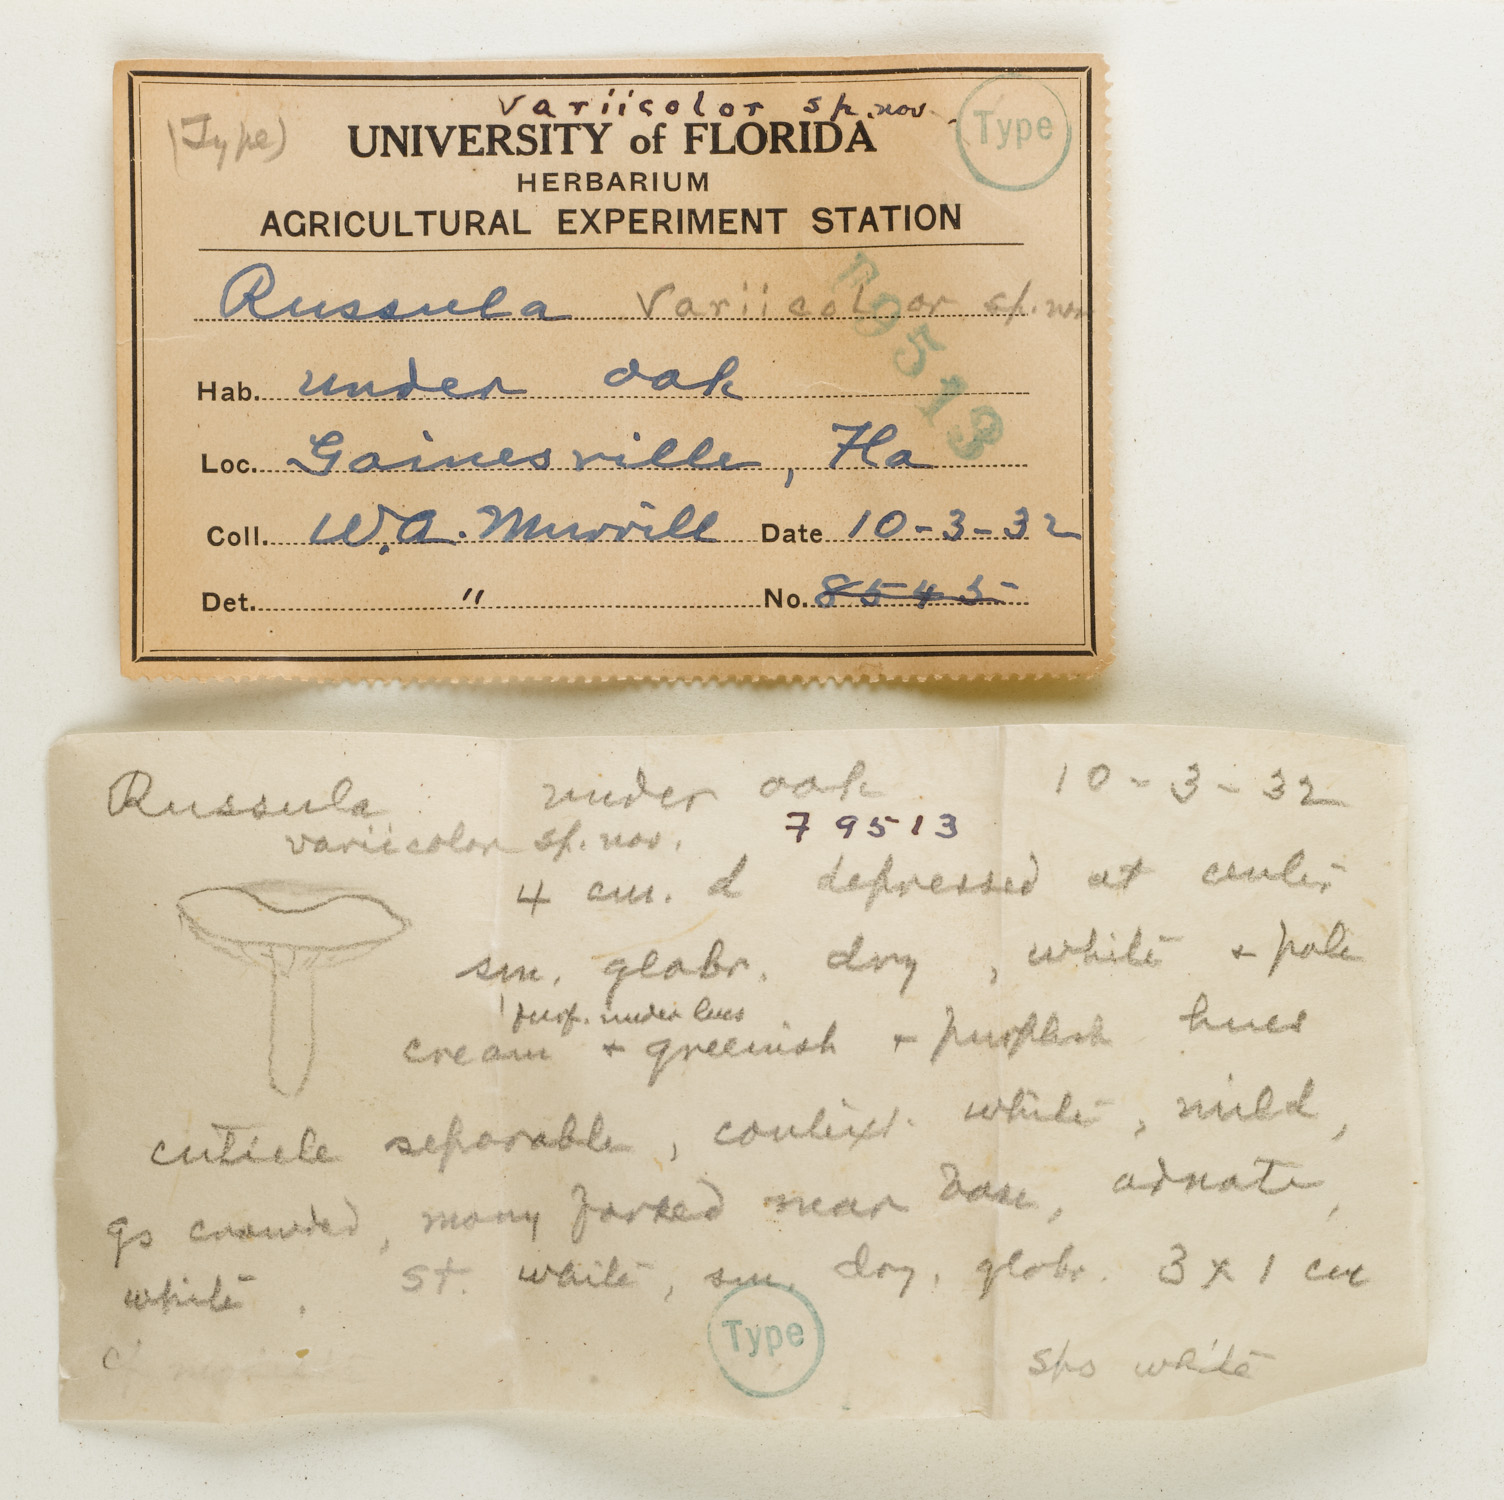 variicolor sp. nov.
(Type)
UNIVERSITY of FLORIDA
Type
HERBARIUM
AGRICULTURAL EXPERIMENT STATION
Russula variicolor sp. nov
F 9513
Hab. under oak
Loc. Gainesville, Fla
Coll. W.A. Murrill Date 10-3-32
Det. " No. 8545
Russula under oak 10-3-32
variicolor sp. nov. 79513
4 cm. d depressed at center
sm. glabr. dry, white + pale
purp. under lens
cream + greenish + purplish hues
cuticle separable, context white, mild,
gs crowded, many forked near base, adnate,
white. st. white, sm. dry, glabr. 3 x 1 cm
Type
cf
sps white